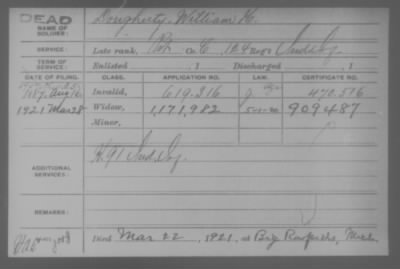 DEAD
NAME OF SOLDIER:
Dougherty, William H.
SERVICE:
Late rank, Pvt Co. C, 124 Reg't Ind. Inf
TERM OF SERVICE:
Enlisted , 1 Discharged , 1
DATE OF FILING. CLASS. APPLICATION NO. LAW. CERTIFICATE NO.
1887 Aug Invalid, 619.216 g 470.516
1921 Mar 28 Widow, 1,171,982 909487
Minor,
ADDITIONAL SERVICES:
K 91 Ind. Inf.
REMARKS:
Died Mar 22, 1921, at Big Rapids, Mich.